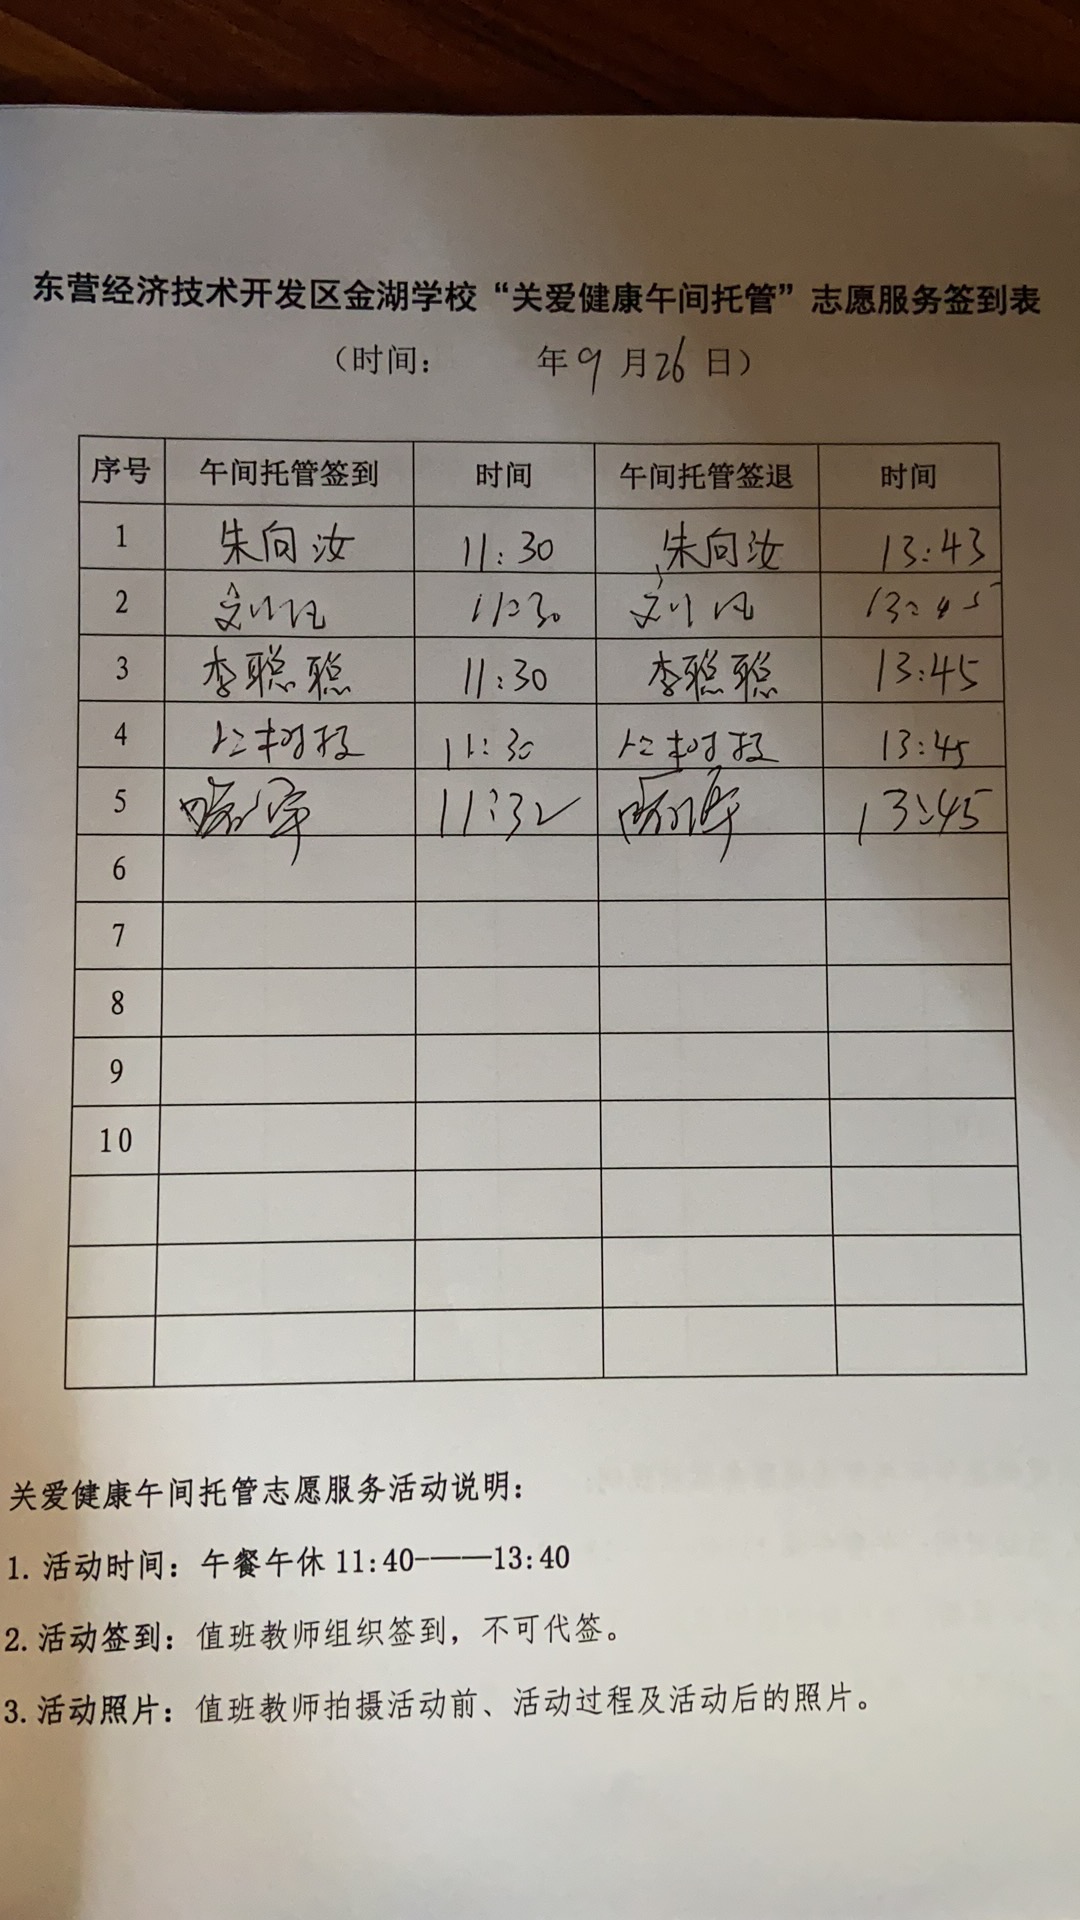 东营经济技术开发区金湖学校“关爱健康午间托管”志愿服务签到表
（时间： 年9月26日）
序号 午间托管签到 时间 午间托管签退 时间
1 朱向汝 11:30 朱向汝 13:43
2 11:30 13:45
3 李聪聪 11:30 李聪聪 13:45
4 11:30 13:45
5 11:32 13:45
6
7
8
9
10
关爱健康午间托管志愿服务活动说明：
1.活动时间：午餐午休11:40-——13:40
2.活动签到：值班教师组织签到，不可代签。
3.活动照片：值班教师拍摄活动前、活动过程及活动后的照片。